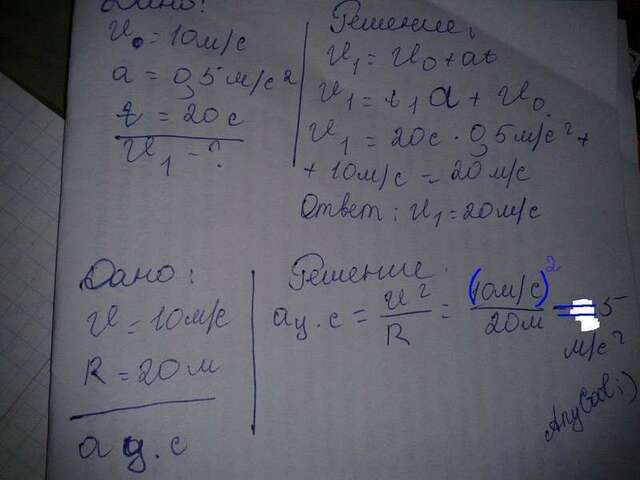 Дано:
v₀ = 10м/с
a = 0,5м/с²
t = 20с
v₁ - ?
Решение:
v₁ = v₀ + at
v₁ = t₁a + v₀
v₁ = 20с · 0,5м/с² +
+ 10м/с = 20м/с
Ответ: v₁ = 20м/с
Дано:
v = 10м/с
R = 20м
aц.с
Решение:
aц.с = v²/R = (10м/с)²/20м = 5
м/с²